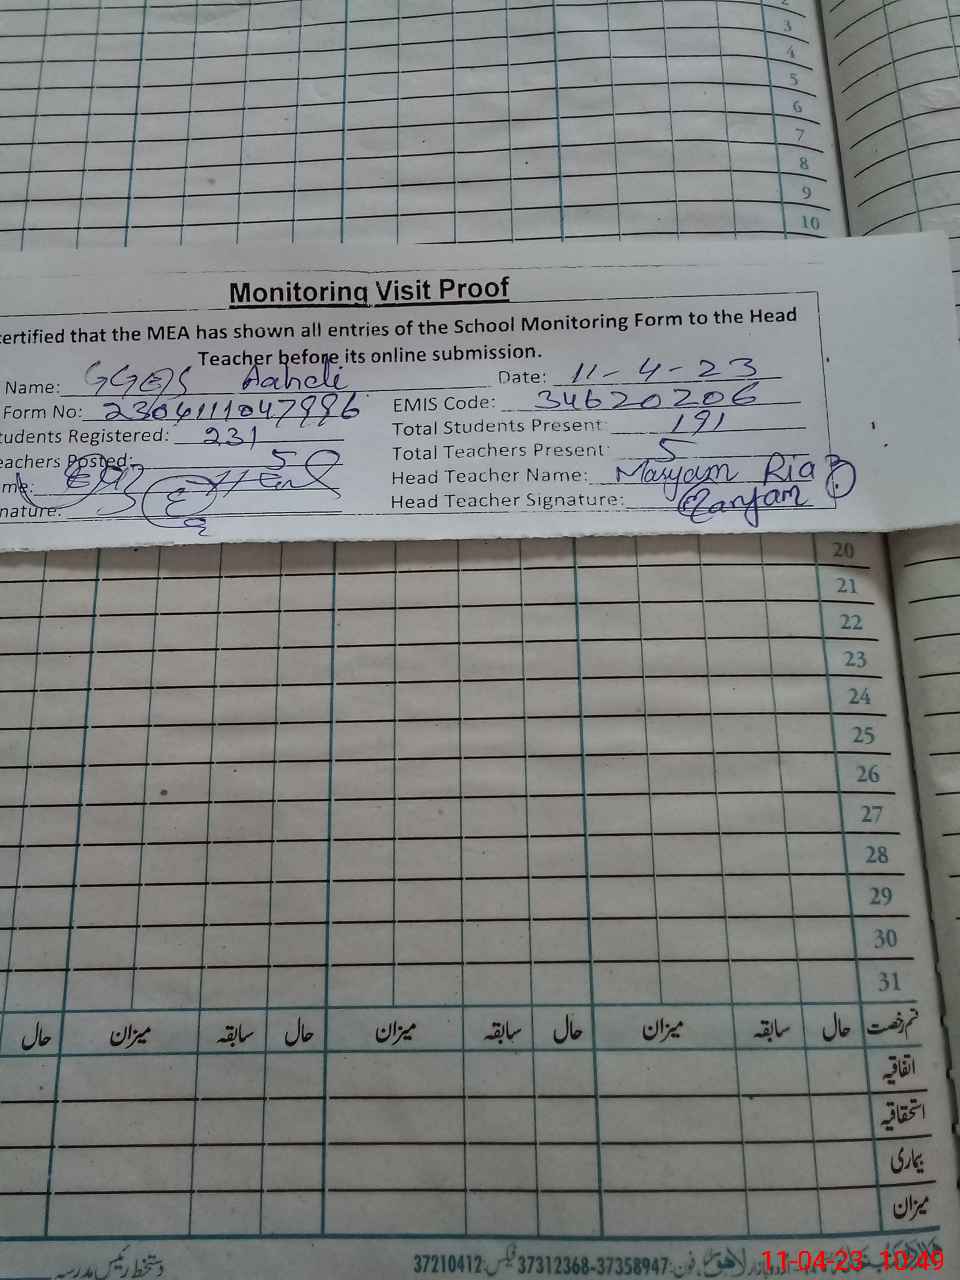 2
3
4
5
6
7
8
9
10
Monitoring Visit Proof
certified that the MEA has shown all entries of the School Monitoring Form to the Head
Teacher before its online submission.
Name: GGES Aahdi Date: 11-4-23
Form No: 2304111047996 EMIS Code: 34620206
tudents Registered: 231 Total Students Present: 191
eachers Posted: 5 Total Teachers Present: 5
me: Head Teacher Name: Maryam Riaz
nature: Head Teacher Signature: Maryam
20
21
22
23
24
25
26
27
28
29
30
31
قسم رخصت حال سابقہ میزان حال سابقہ میزان حال سابقہ میزان حال
اتفاقیہ
استحقاقیہ
بیماری
میزان
دستخط رئیس مدرسہ
لاہور فون: 37358947-37312368 فیکس: 37210412
11-04-23 10:49